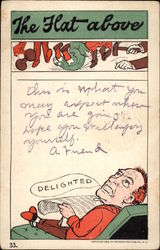 The Flat above
this is what you
may expect when
you are going
hope you will enjoy
yourself.
A Friend
DELIGHTED
33.